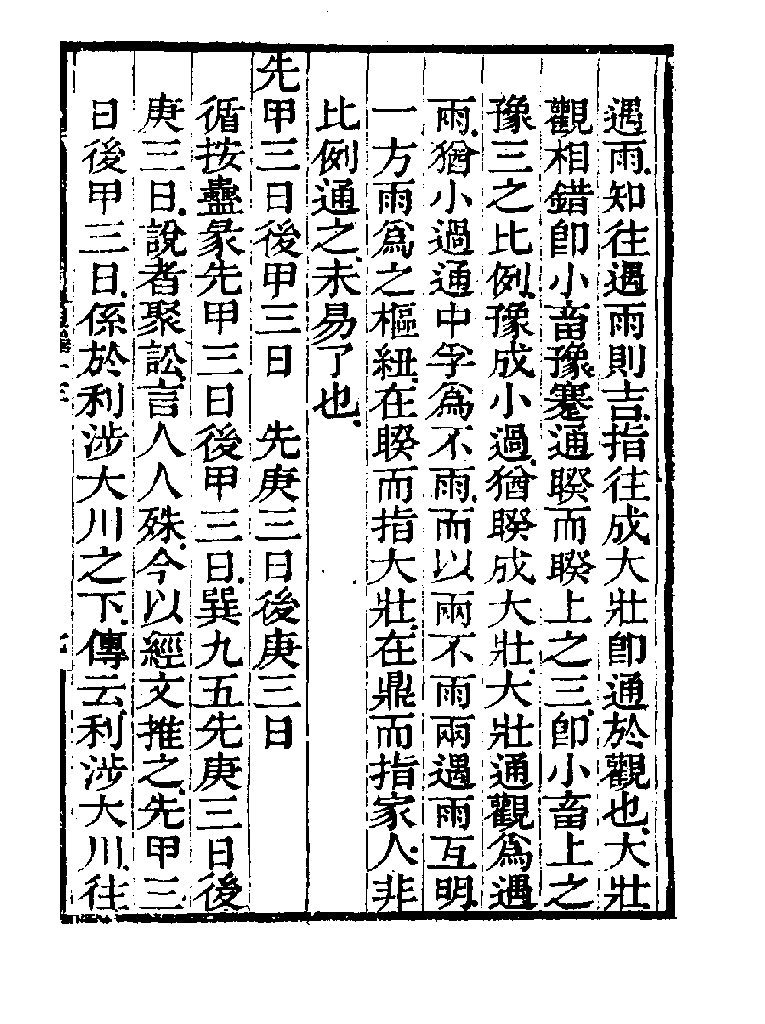 遇雨知往遇雨則吉指往成大壯卽通於觀也大壯
觀相錯卽小畜豫蹇通睽而睽上之三卽小畜上之
豫三之比例豫成小過猶睽成大壯大壯通觀爲遇
雨猶小過通中孚爲不雨而以兩不雨兩遇雨互明
一方雨爲之樞紐在睽而指大壯在鼎而指家人非
比例通之未易了也
先甲三日後甲三日　先庚三日後庚三日
循按蠱彖先甲三日後甲三日巽九五先庚三日後
庚三日說者聚訟言人人殊今以經文推之先甲三
日後甲三日係於利涉大川之下傳云利涉大川往